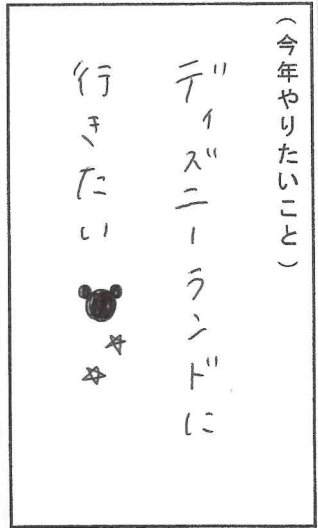 （今年やりたいこと）
ディズニーランドに
行きたい